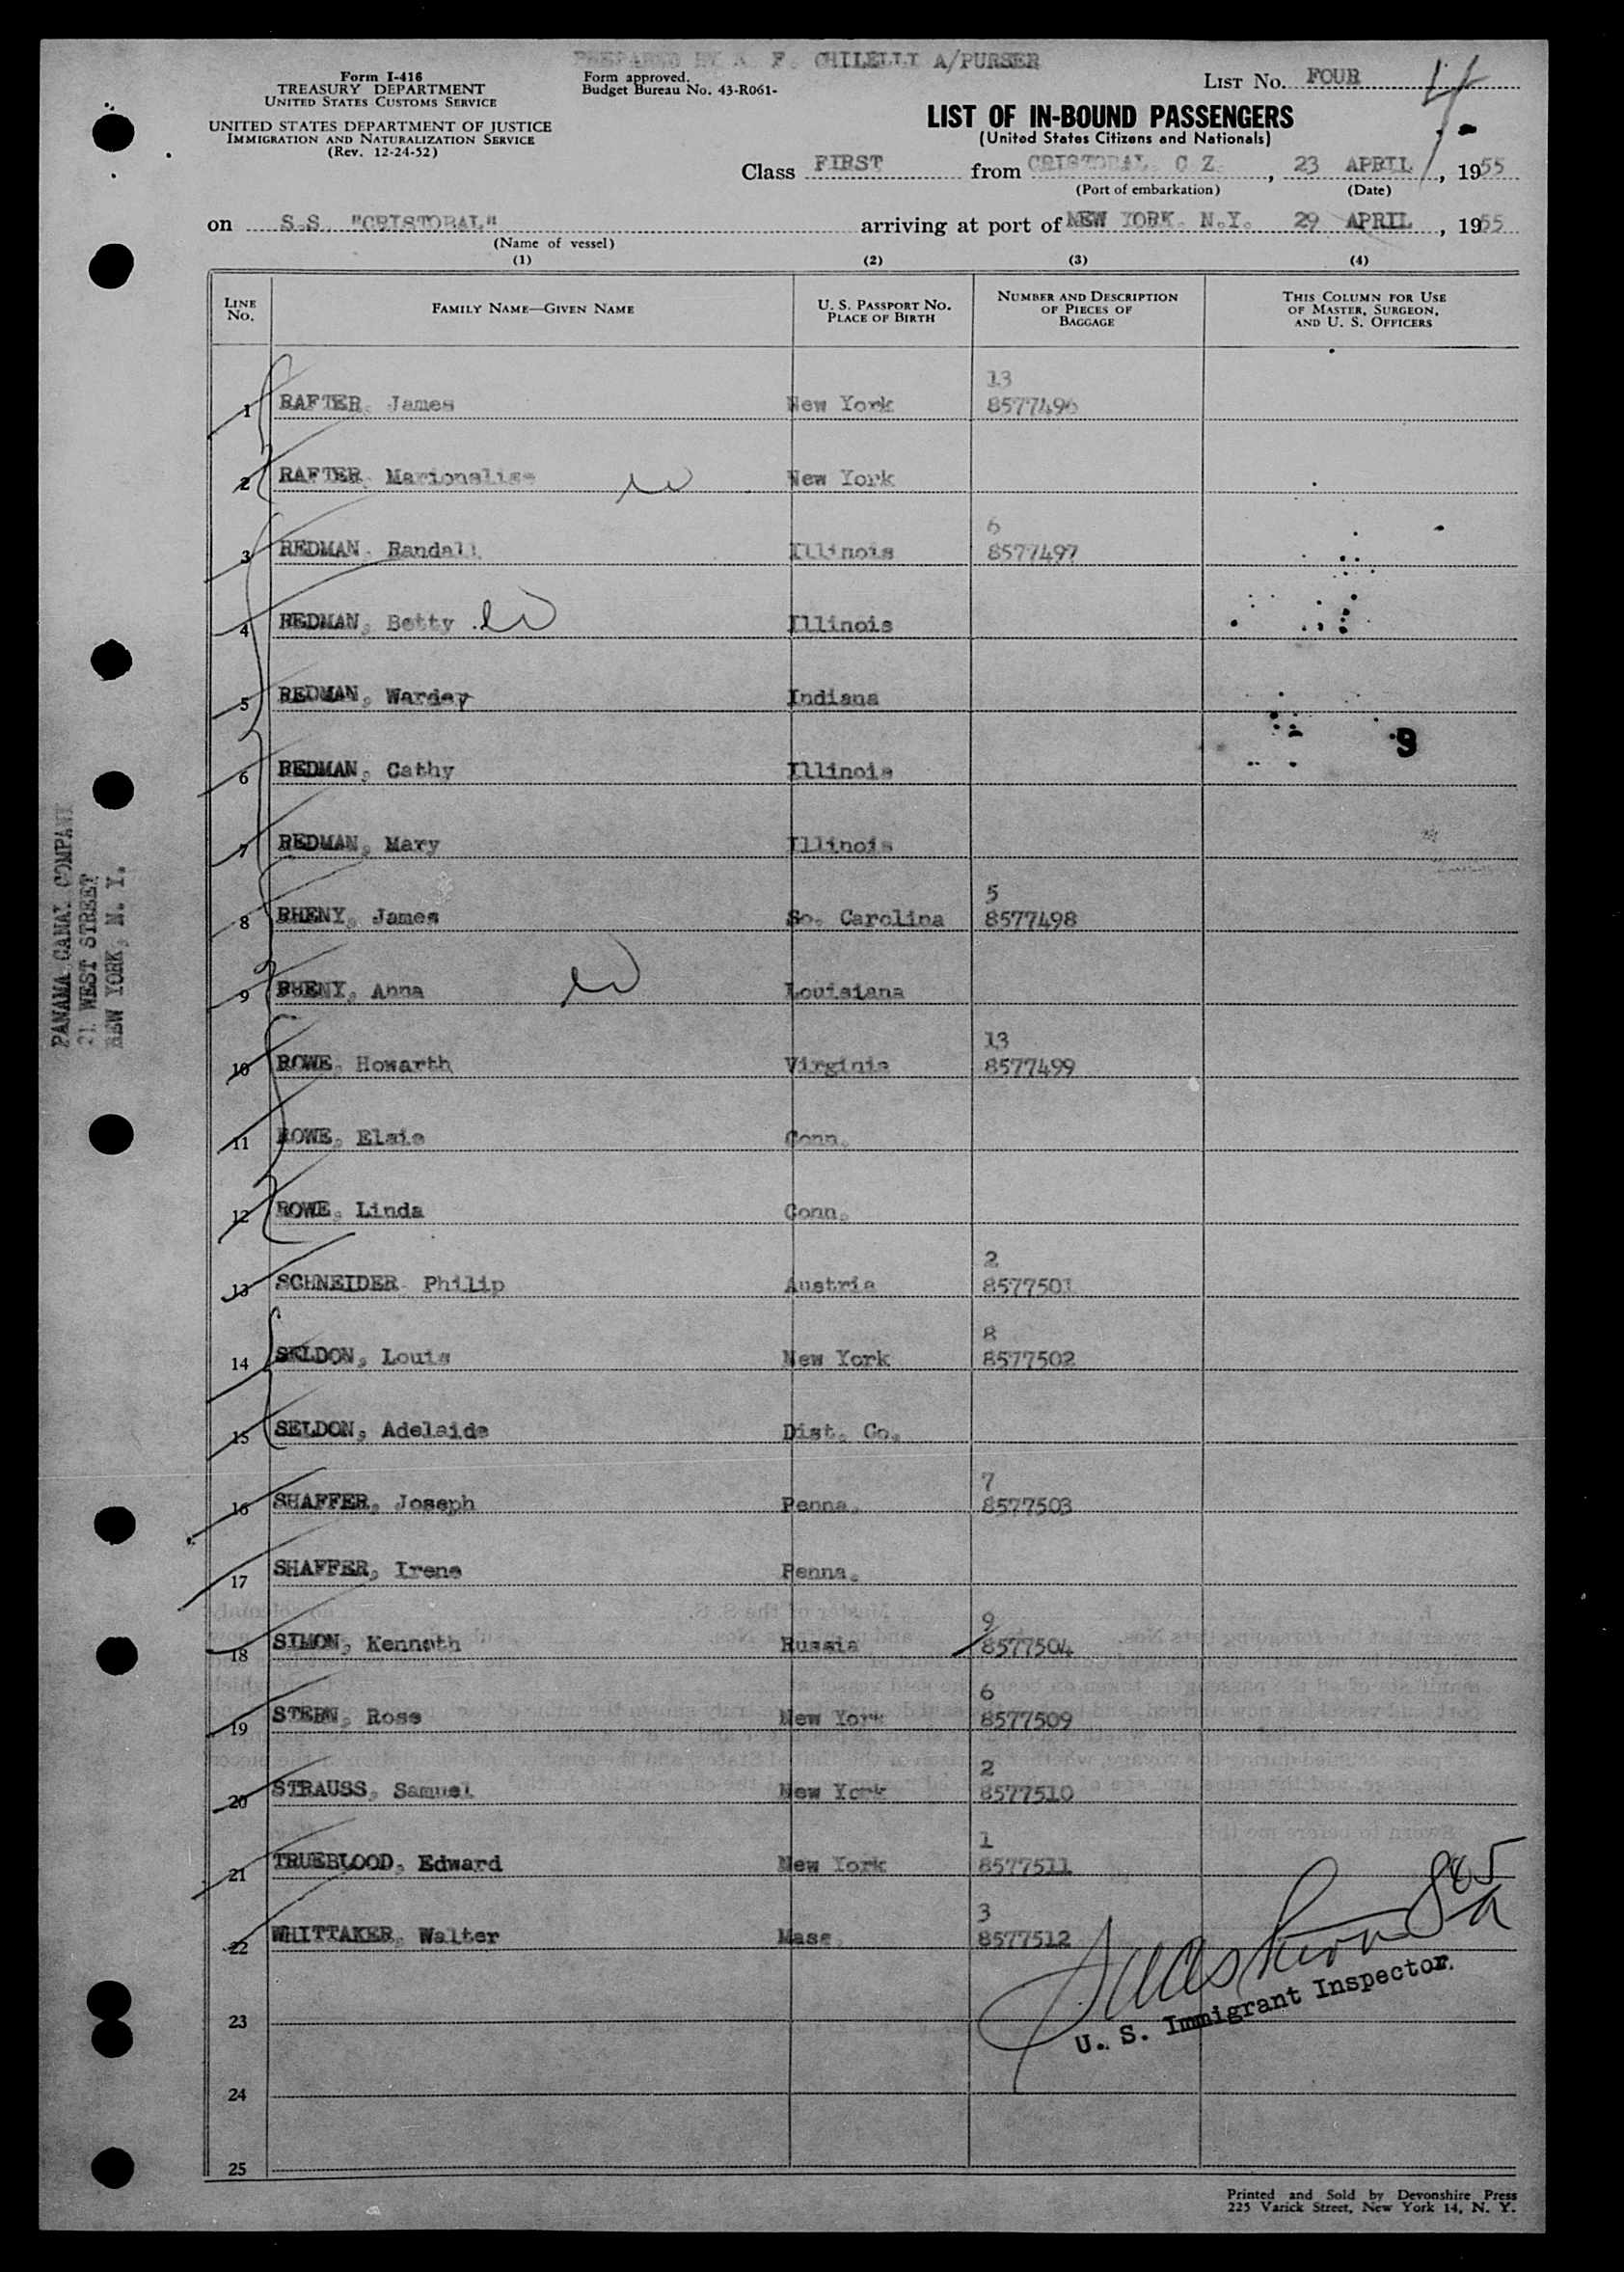 PREPARED BY A. F. CHILELLI A/PURSER
Form I-416
TREASURY DEPARTMENT
UNITED STATES CUSTOMS SERVICE
UNITED STATES DEPARTMENT OF JUSTICE
IMMIGRATION AND NATURALIZATION SERVICE
(Rev. 12-24-52)
Form approved.
Budget Bureau No. 43-R061-
LIST NO. FOUR 4
LIST OF IN-BOUND PASSENGERS
(United States Citizens and Nationals)
Class FIRST from CRISTOBAL, C Z. , 23 APRIL , 1955
(Port of embarkation) (Date)
on S.S. "CRISTOBAL" arriving at port of NEW YORK, N.Y. 29 APRIL , 1955
(Name of vessel)
(1) (2) (3) (4)
LINE NO. FAMILY NAME—GIVEN NAME U. S. PASSPORT NO. PLACE OF BIRTH NUMBER AND DESCRIPTION OF PIECES OF BAGGAGE THIS COLUMN FOR USE OF MASTER, SURGEON, AND U. S. OFFICERS
13
1 RAFTER, James New York 8577496
2 RAFTER, Marionelise New York
6
3 REDMAN, Randall Illinois 8577497
4 REDMAN, Betty Illinois
5 REDMAN, Wardey Indiana
9
6 REDMAN, Cathy Illinois
7 REDMAN, Mary Illinois
5
8 RHENY, James So. Carolina 8577498
9 RHENY, Anna Louisiana
13
10 ROWE, Howarth Virginia 8577499
11 ROWE, Elsie Conn.
12 ROWE, Linda Conn.
2
13 SCHNEIDER, Philip Austria 8577501
8
14 SELDON, Louis New York 8577502
15 SELDON, Adelaide Dist. Co.
7
16 SHAFFER, Joseph Penna. 8577503
17 SHAFFER, Irene Penna.
9
18 SIMON, Kenneth Russia 8577504
6
19 STERN, Rose New York 8577509
2
20 STRAUSS, Samuel New York 8577510
1
21 TRUEBLOOD, Edward New York 8577511
3
22 WHITTAKER, Walter Mass. 8577512
U. S. Immigrant Inspector.
23
24
25
Printed and Sold by Devonshire Press
225 Varick Street, New York 14, N. Y.
PANAMA CANAL COMPANY
21 WEST STREET
NEW YORK, N. Y.